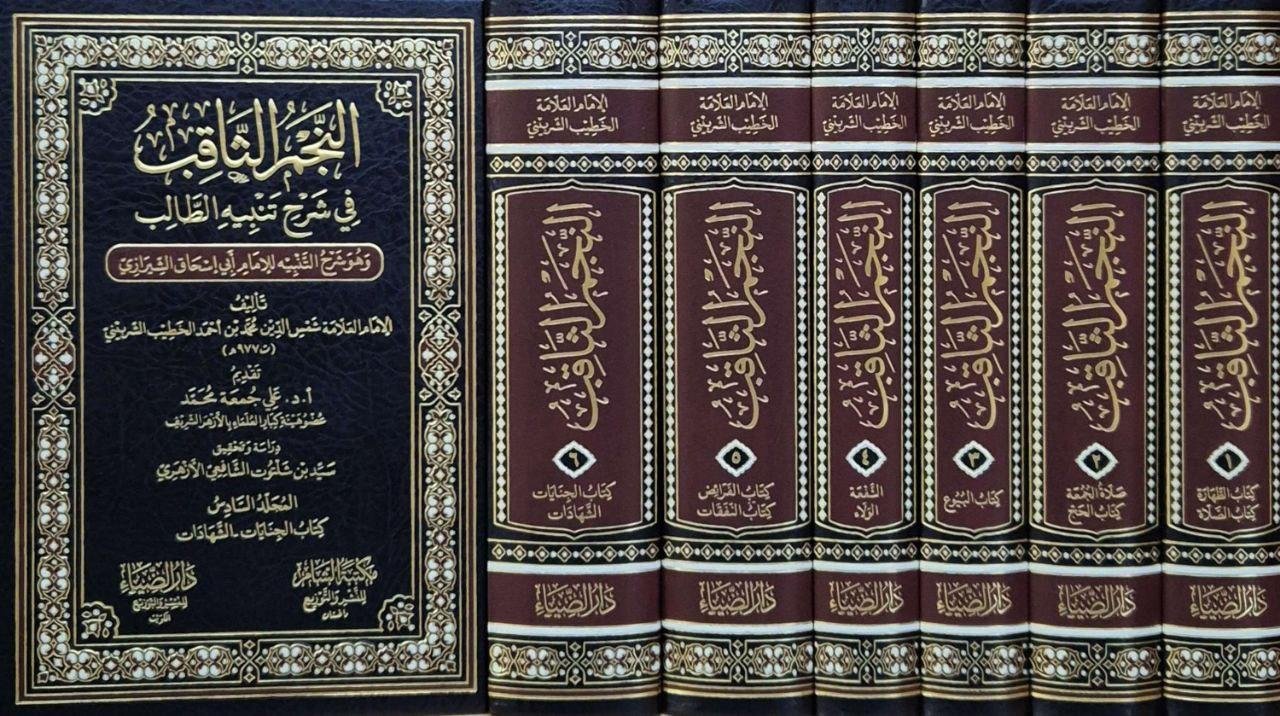 النَّجْمُ الثَّاقِبُ
فِي شَرْحِ تَنْبِيهِ الطَّالِبِ
وَهُوَ شَرْحُ التَّنْبِيهِ لِلإِمَامِ أَبِي إِسْحَاقَ الشِّيرَازِيِّ
تَأْلِيفُ
الإِمَامِ العَلَّامَةِ شَمْسِ الدِّينِ مُحَمَّدِ بْنِ أَحْمَدَ الخَطِيبِ الشِّرْبِينِيِّ
(ت ٩٧٧هـ)
تَقْدِيمُ
أ.د. عَلِي جُمعَة مُحَمَّد
عُضْو هَيْئَة كِبَار العُلَمَاءِ بِالأَزْهَرِ الشَّرِيفِ
دِرَاسَة وَتَحْقِيق
سَيِّد بن شَلْتُوت الشَّافِعِيّ الأَزْهَرِيّ
المُجَلَّدُ السَّادِسُ
كِتَابُ الجِنَايَات - الشَّهَادَات
مَكْتَبَةُ الشَّامِ
لِلنَّشْرِ وَالتَّوْزِيعِ
داغستان
دَارُ الضِّيَاءِ
لِلنَّشْرِ وَالتَّوْزِيعِ
الكويت
الإِمَامُ العَلَّامَةُ
الخَطِيبُ الشِّرْبِينِيُّ
النَّجْمُ الثَّاقِبُ
١
كِتَابُ الطَّهَارَة
كِتَابُ الصَّلَاة
دَارُ الضِّيَاءِ
الإِمَامُ العَلَّامَةُ
الخَطِيبُ الشِّرْبِينِيُّ
النَّجْمُ الثَّاقِبُ
٢
صَلَاةُ الجُمُعَة
كِتَابُ الحَجّ
دَارُ الضِّيَاءِ
الإِمَامُ العَلَّامَةُ
الخَطِيبُ الشِّرْبِينِيُّ
النَّجْمُ الثَّاقِبُ
٣
كِتَابُ البُيُوع
دَارُ الضِّيَاءِ
الإِمَامُ العَلَّامَةُ
الخَطِيبُ الشِّرْبِينِيُّ
النَّجْمُ الثَّاقِبُ
٤
الشُّفْعَة
الوَلَاء
دَارُ الضِّيَاءِ
الإِمَامُ العَلَّامَةُ
الخَطِيبُ الشِّرْبِينِيُّ
النَّجْمُ الثَّاقِبُ
٥
كِتَابُ الفَرَائِض
كِتَابُ النَّفَقَات
دَارُ الضِّيَاءِ
الإِمَامُ العَلَّامَةُ
الخَطِيبُ الشِّرْبِينِيُّ
النَّجْمُ الثَّاقِبُ
٦
كِتَابُ الجِنَايَات
الشَّهَادَات
دَارُ الضِّيَاءِ